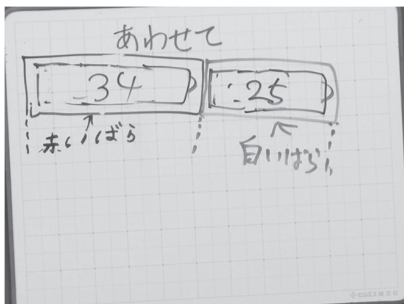 あわせて
34 25
赤いばら
白いばら